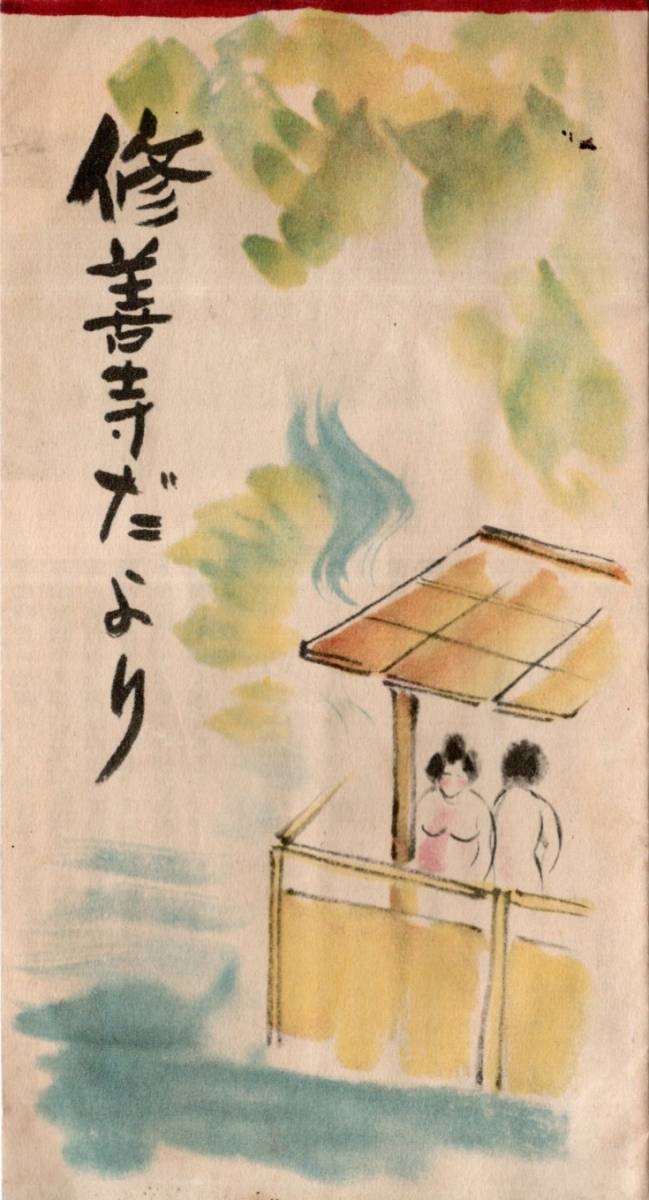 修善寺だより